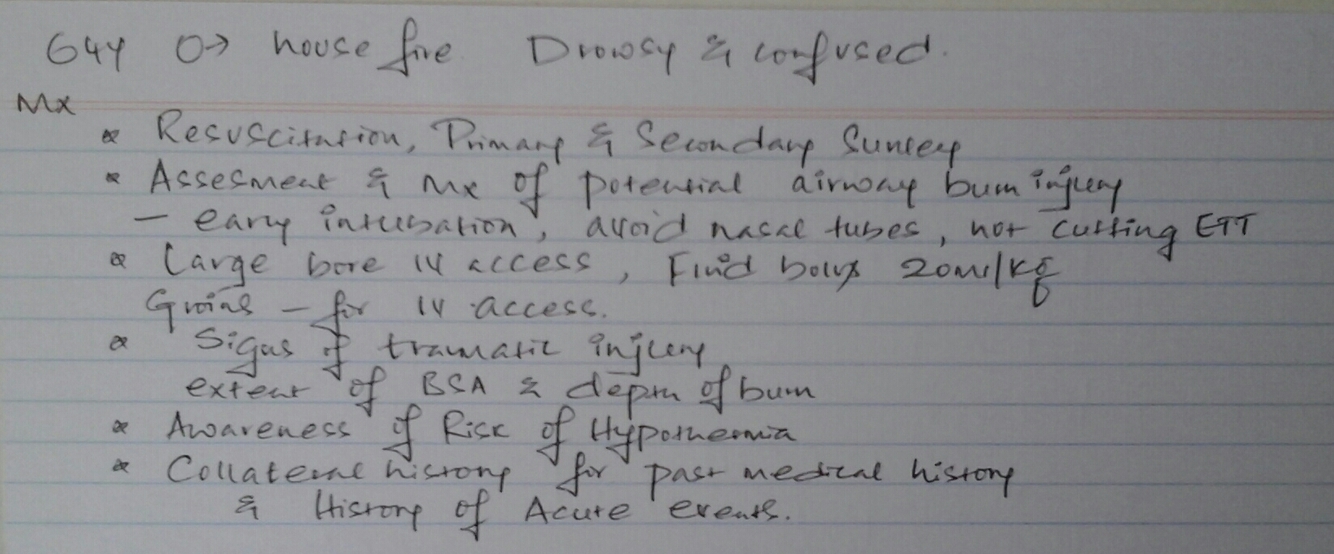 64y O→ house fire. Drowsy & confused.
Mx
* Resuscitation, Primary & Secondary Survey
* Assesment & Mx of potential airway burn injury
- early intubation, avoid nasal tubes, not cutting ETT
* Large bore IV access, Fluid bolus 20ml/kg
Groins - for IV access.
* Signs of traumatic injury
extent of BSA & depth of burn
* Awareness of Risk of Hypothermia
* Collateral history for past medical history
& History of Acute events.